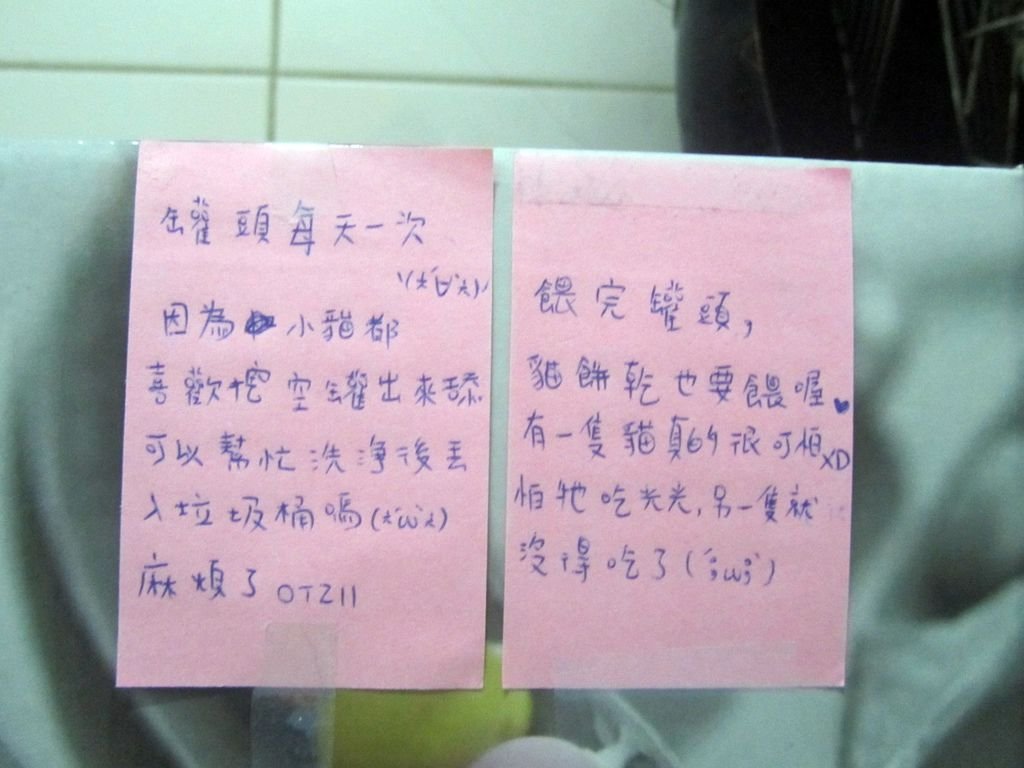 罐頭每天一次
因為小貓都
喜歡挖空罐出來舔
可以幫忙洗淨後丟
入垃圾桶嗎(*'ω'*)
麻煩了 OTZ11
餵完罐頭,
貓餅乾也要餵喔♥
有一隻貓真的很可怕XD
怕牠吃光光,另一隻就
沒得吃了(´;ω;`)